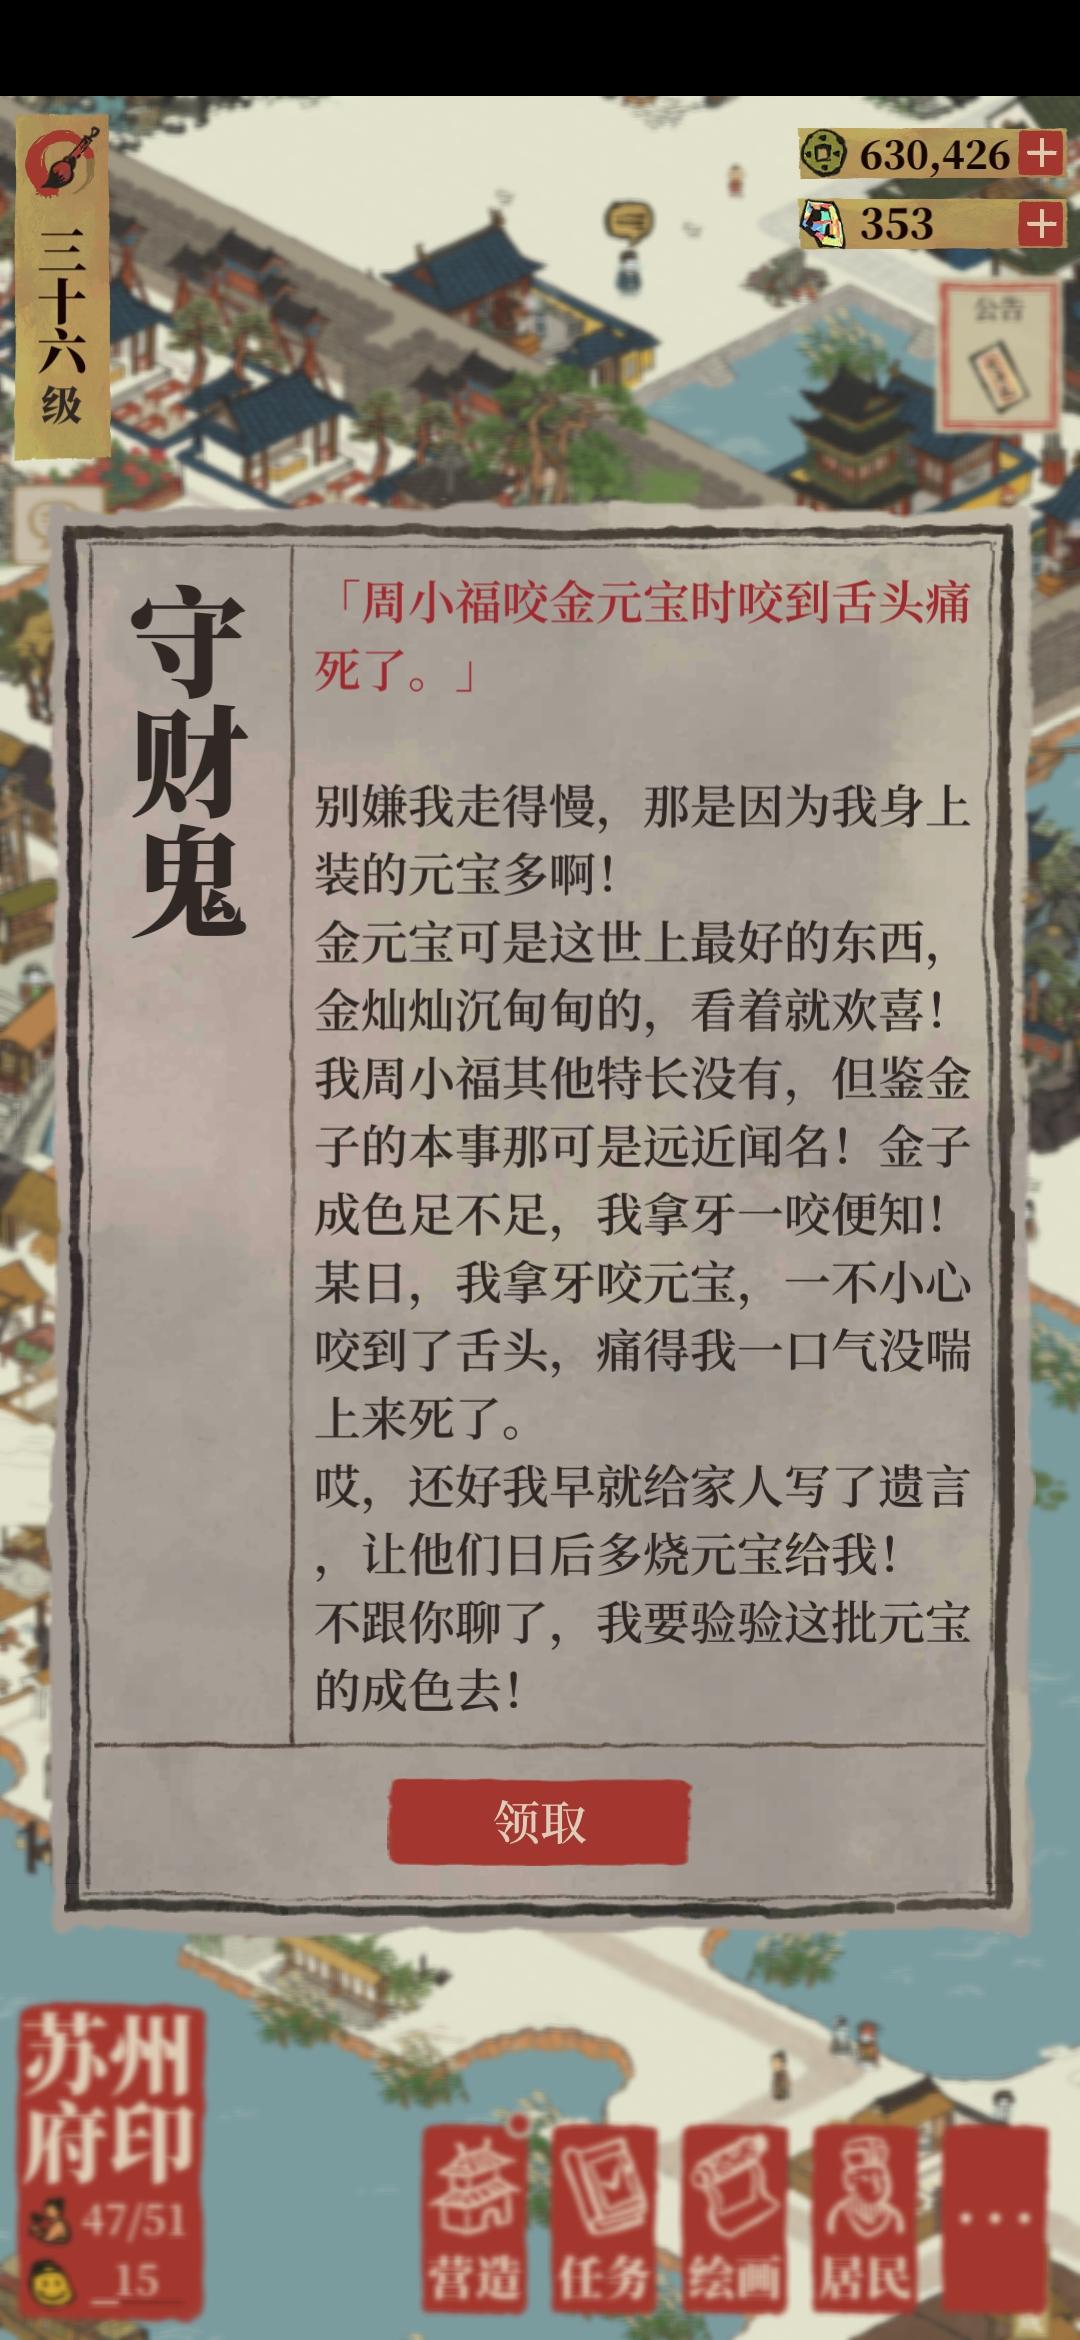 三十六级
630,426
353
公告
守财鬼
「周小福咬金元宝时咬到舌头痛
死了。」
别嫌我走得慢，那是因为我身上
装的元宝多啊！
金元宝可是这世上最好的东西，
金灿灿沉甸甸的，看着就欢喜！
我周小福其他特长没有，但鉴金
子的本事那可是远近闻名！金子
成色足不足，我拿牙一咬便知！
某日，我拿牙咬元宝，一不小心
咬到了舌头，痛得我一口气没喘
上来死了。
哎，还好我早就给家人写了遗言
，让他们日后多烧元宝给我！
不跟你聊了，我要验验这批元宝
的成色去！
领取
苏州
府印
47/51
15
营造
任务
绘画
居民